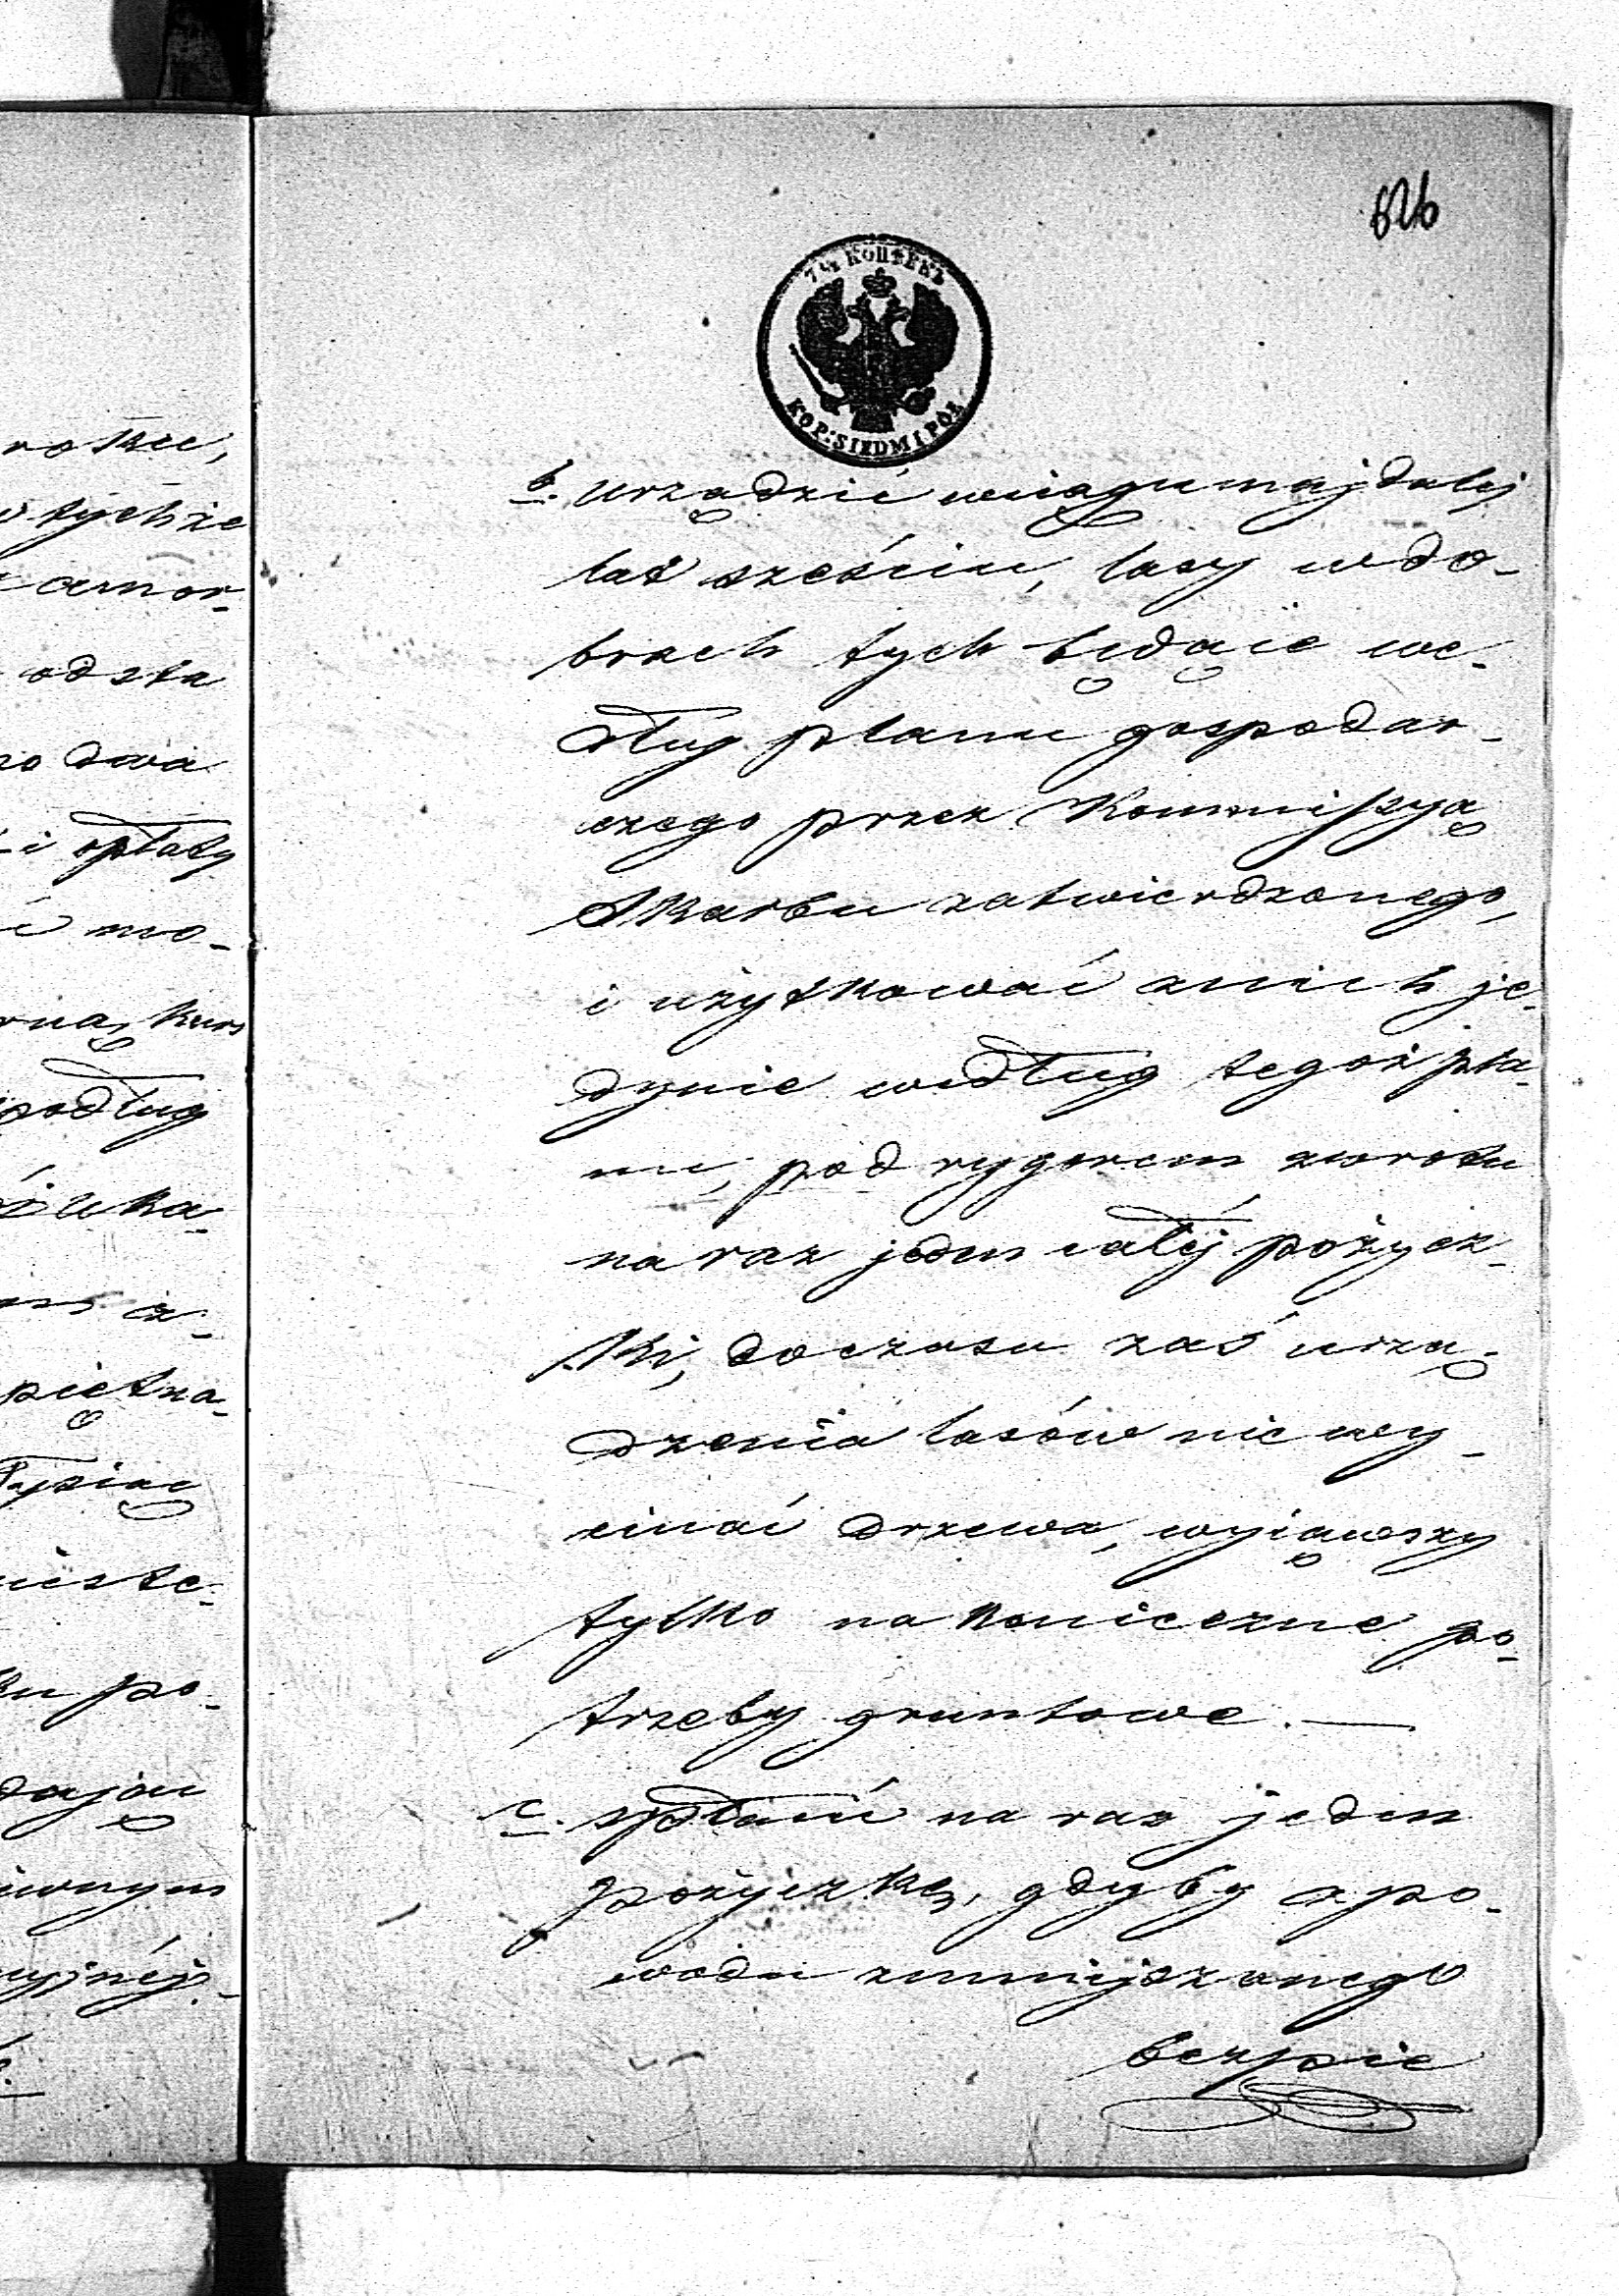 626
7½ КОПѢЕКЪ
KOP: SIEDM I PÓŁ
b. urządzić wciągu najdalej
lat sześciu, lasy w do-
brach tych będące we-
dług planu gospodar-
czego przez Kommissyą
Skarbu zatwierdzonego,
i użytkować z nich je-
dynie według tegoż pla-
nu, pod rygorem zwrotu
na raz jeden całéj pożycz-
ki, do czasu zaś urzą-
dzenia lasów nie wy-
cinać drzewa, wyjąwszy
tylko na konieczne po-
trzeby gruntowe. —
c. spłacić na raz jeden
pożyczkę, gdyby z po-
wodu zmniejszonego
bezpie
roku,
tychże
amor-
odsta
dwa
i opłaty
mo-
kurs
podług
uka-
piętna-
Tysiąc
po-